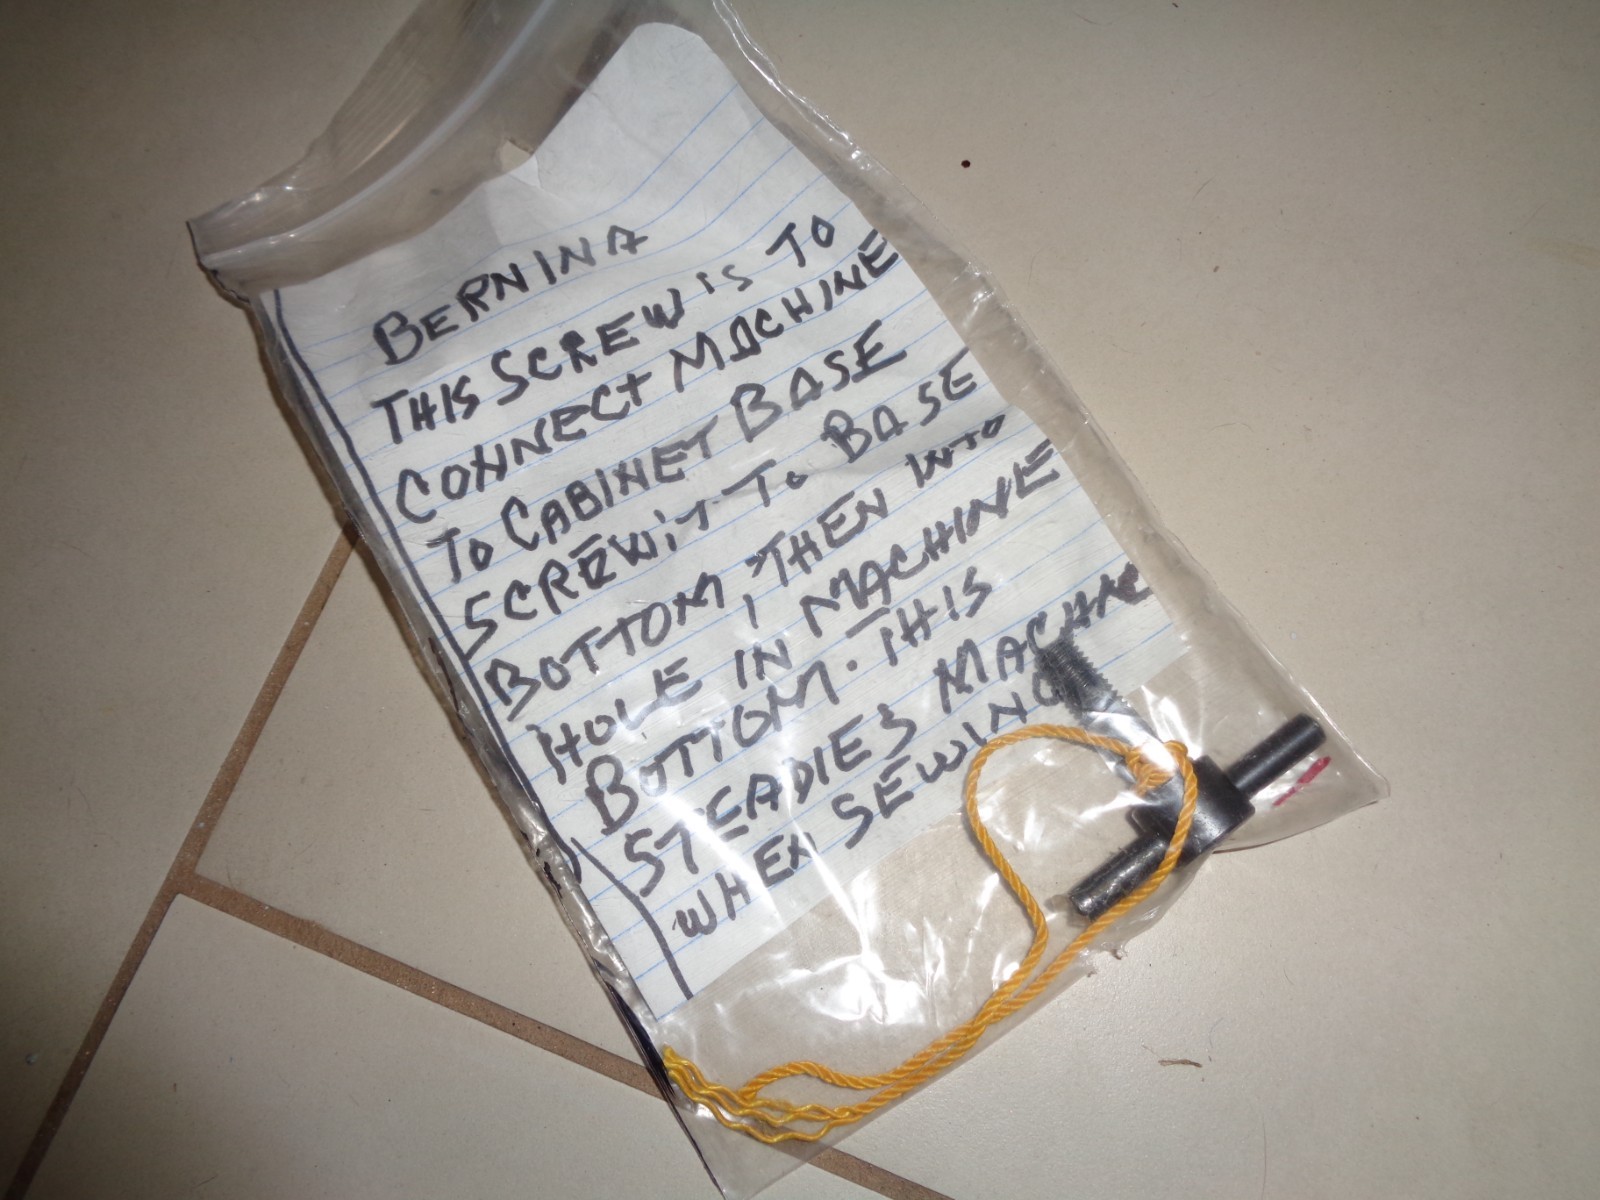 BERNINA
THIS SCREW is TO
CONNECT MACHINE
To CABINET BASE
SCREW iT To BASE
BOTTOM, THEN INTO
HOLE IN MACHINE
BOTTOM. THIS
STEADIES MACHINE
WHEN SEWING